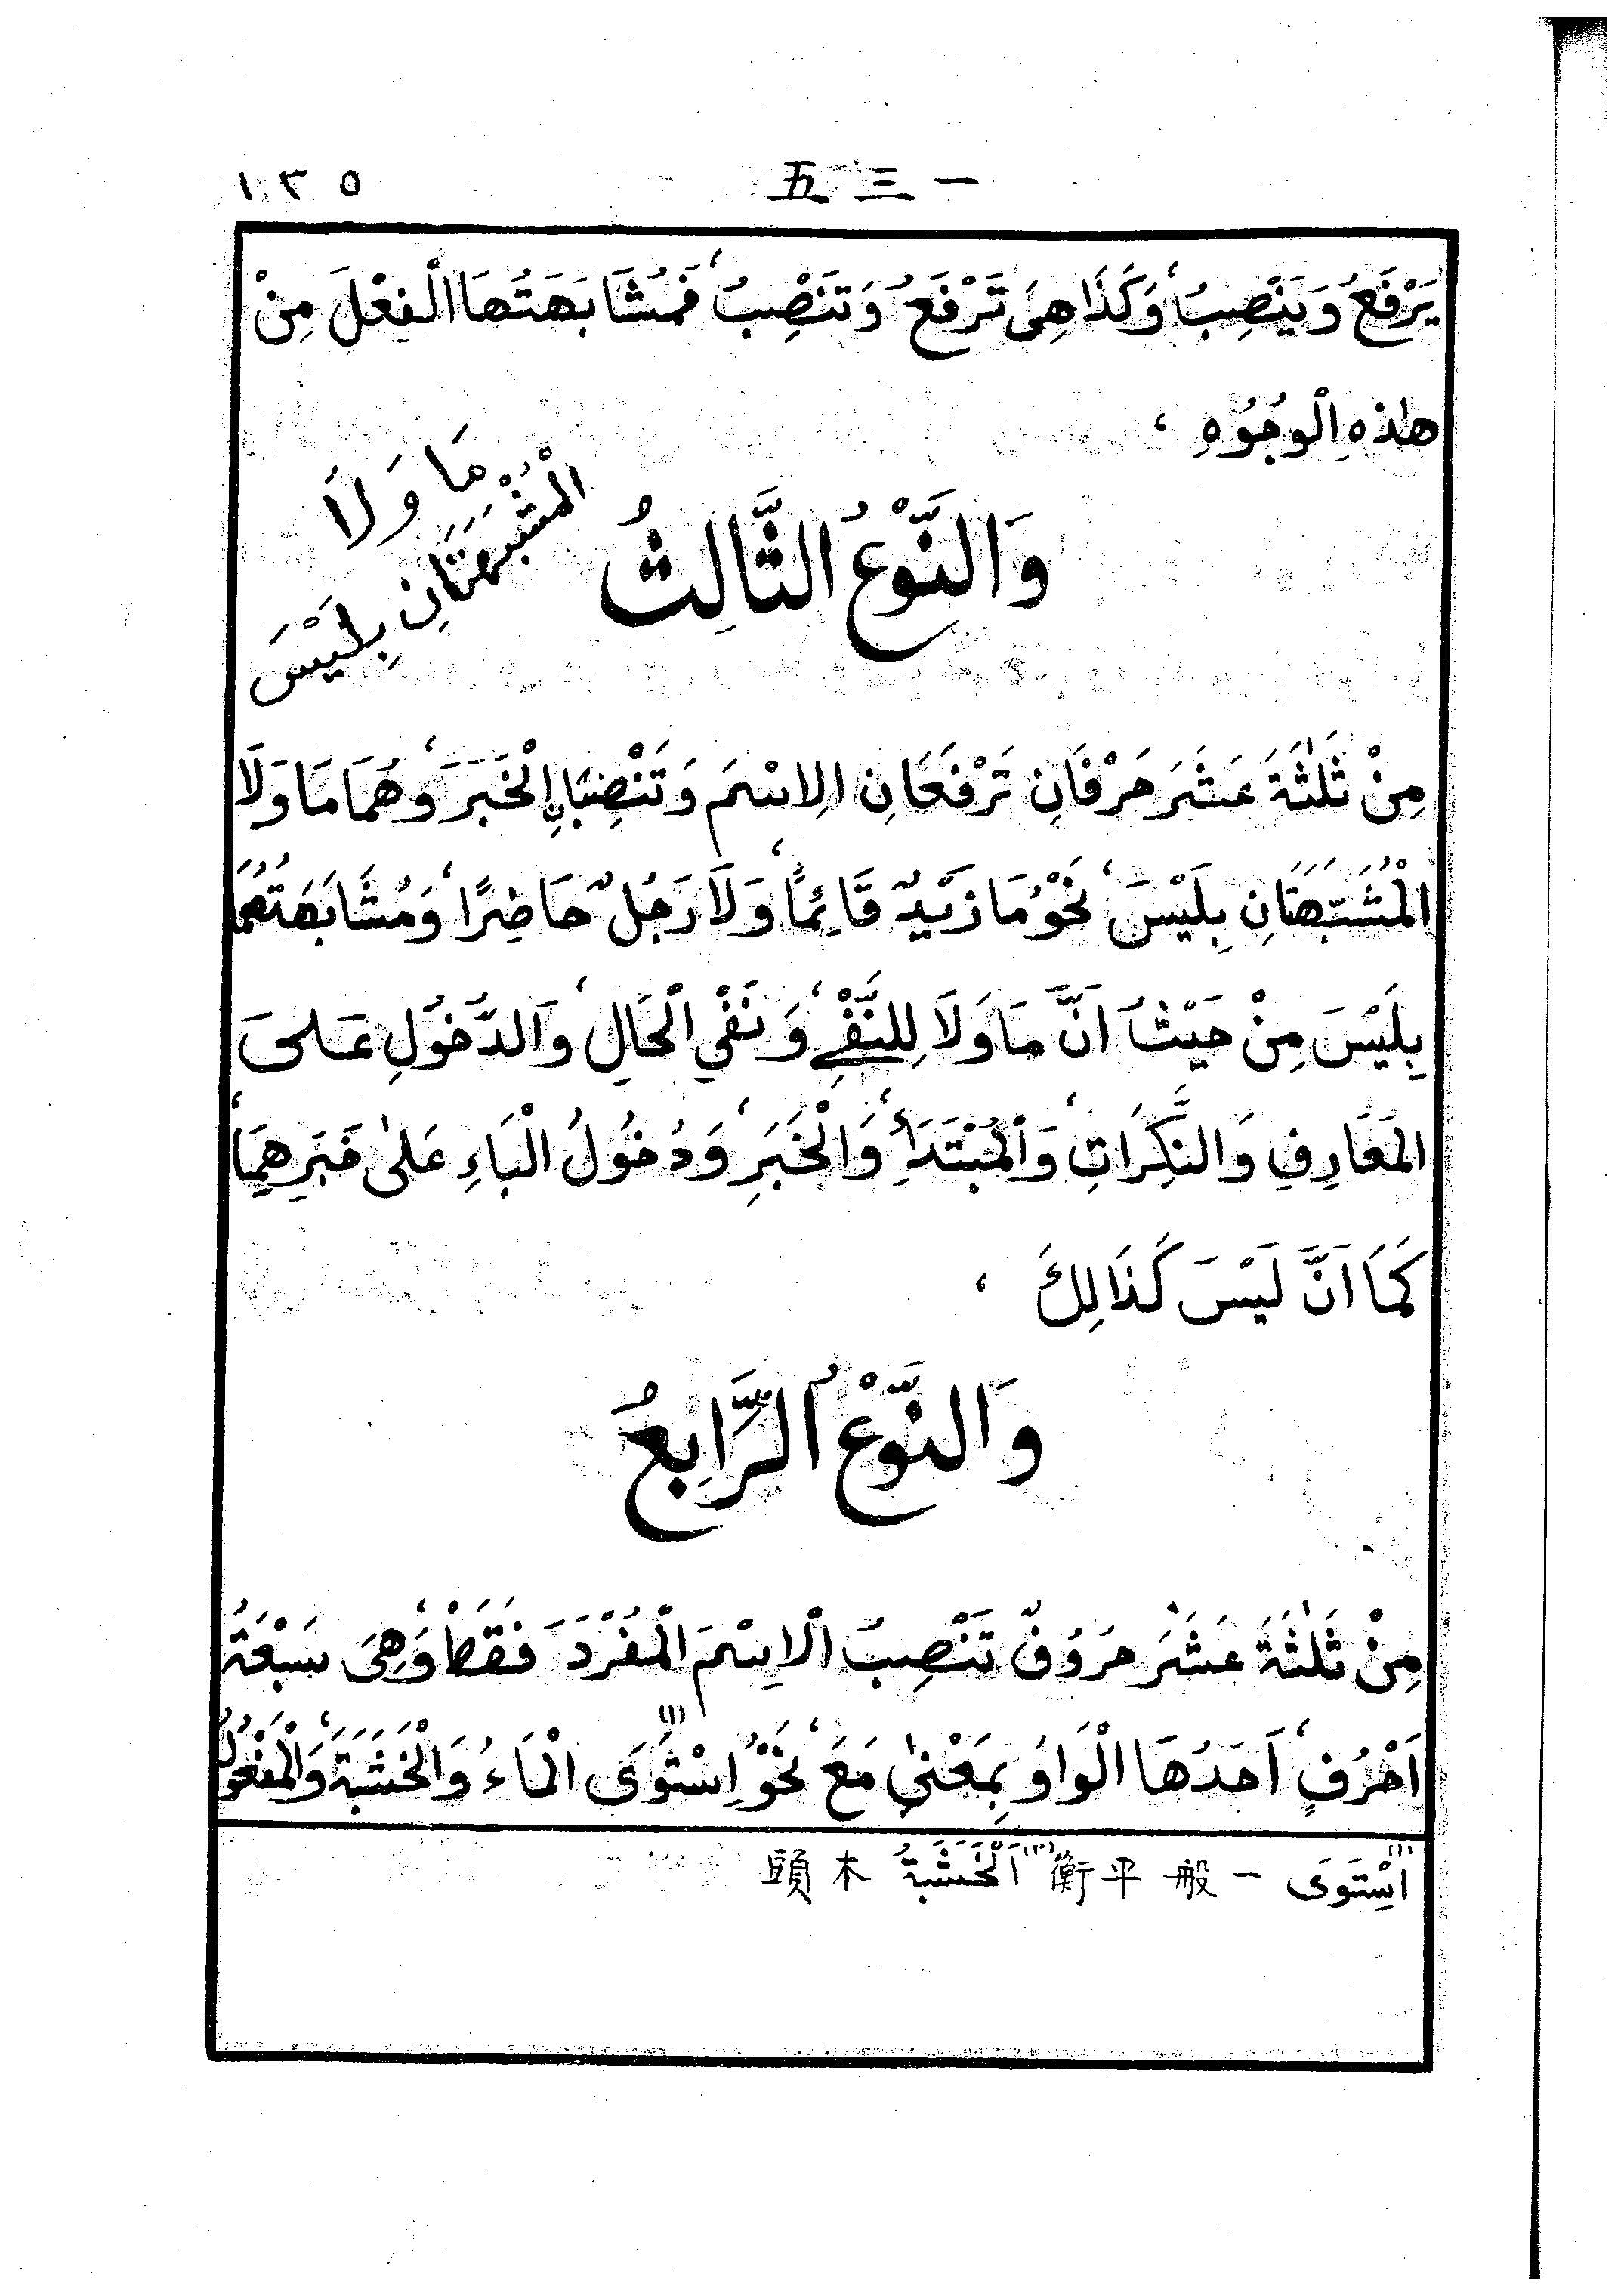 ١٣٥ 五三一
يَرْفَعُ وَيَنْصِبُ، وَكَذَا هِىَ تَرْفَعُ وَتَنْصِبُ، فَمُشَابَهَتُهَا الْفِعْلَ مِنْ
هٰذِهِ الْوُجُوُهِ ،
وَالنَّوْعُ الثَّالِثُ
مَا وَلَا
الْمُشَبَّهَتَانِ بِلَيْسَ
مِنْ ثَلٰثَةَ عَشَرَ حَرْفَانِ تَرْفَعَانِ الِاسْمَ وَتَنْصِبَانِ الْخَبَرَ، وَهُمَا مَا وَلَا
الْمُشَبَّهَتَانِ بِلَيْسَ، نَحْوُ مَا زَيْدٌ قَائِمًا، وَلَا رَجُلٌ حَاضِرًا، وَمُشَابَهَتُهُمَا
بِلَيْسَ مِنْ حَيْثُ اَنَّ مَا وَلَا لِلنَّفْىِ، وَنَفْيِ الْحَالِ، وَالدُّخُوْلِ عَلىَ
الْمَعَارِفِ وَالنَّكِرَاتِ، وَالْمُبْتَدَأِ، وَالْخَبَرِ، وَدُخُولُ الْبَاءِ عَلٰى خَبَرِهِمَا،
كَمَا اَنَّ لَيْسَ كَذَالِكَ ،
وَالنَّوْعُ الرَّابِعُ
مِنْ ثَلٰثَةَ عَشَرَ حُرُوُفٌ تَنْصِبُ الْاِسْمَ الْمُفْرَدَ فَقَطْ، وَهِىَ سَبْعَةُ
اَحْرُفٍ، اَحَدُهَا الْوَاوُ بِمَعْنٰى مَعَ، نَحْوُ اِسْتَوَى (١) الْمَاءُ وَالْخَشَبَةَ، وَالْمَفْعُولُ
(١) اِسْتَوَى 一般平衡 (٢) اَلْخَشَبَةُ 木頭